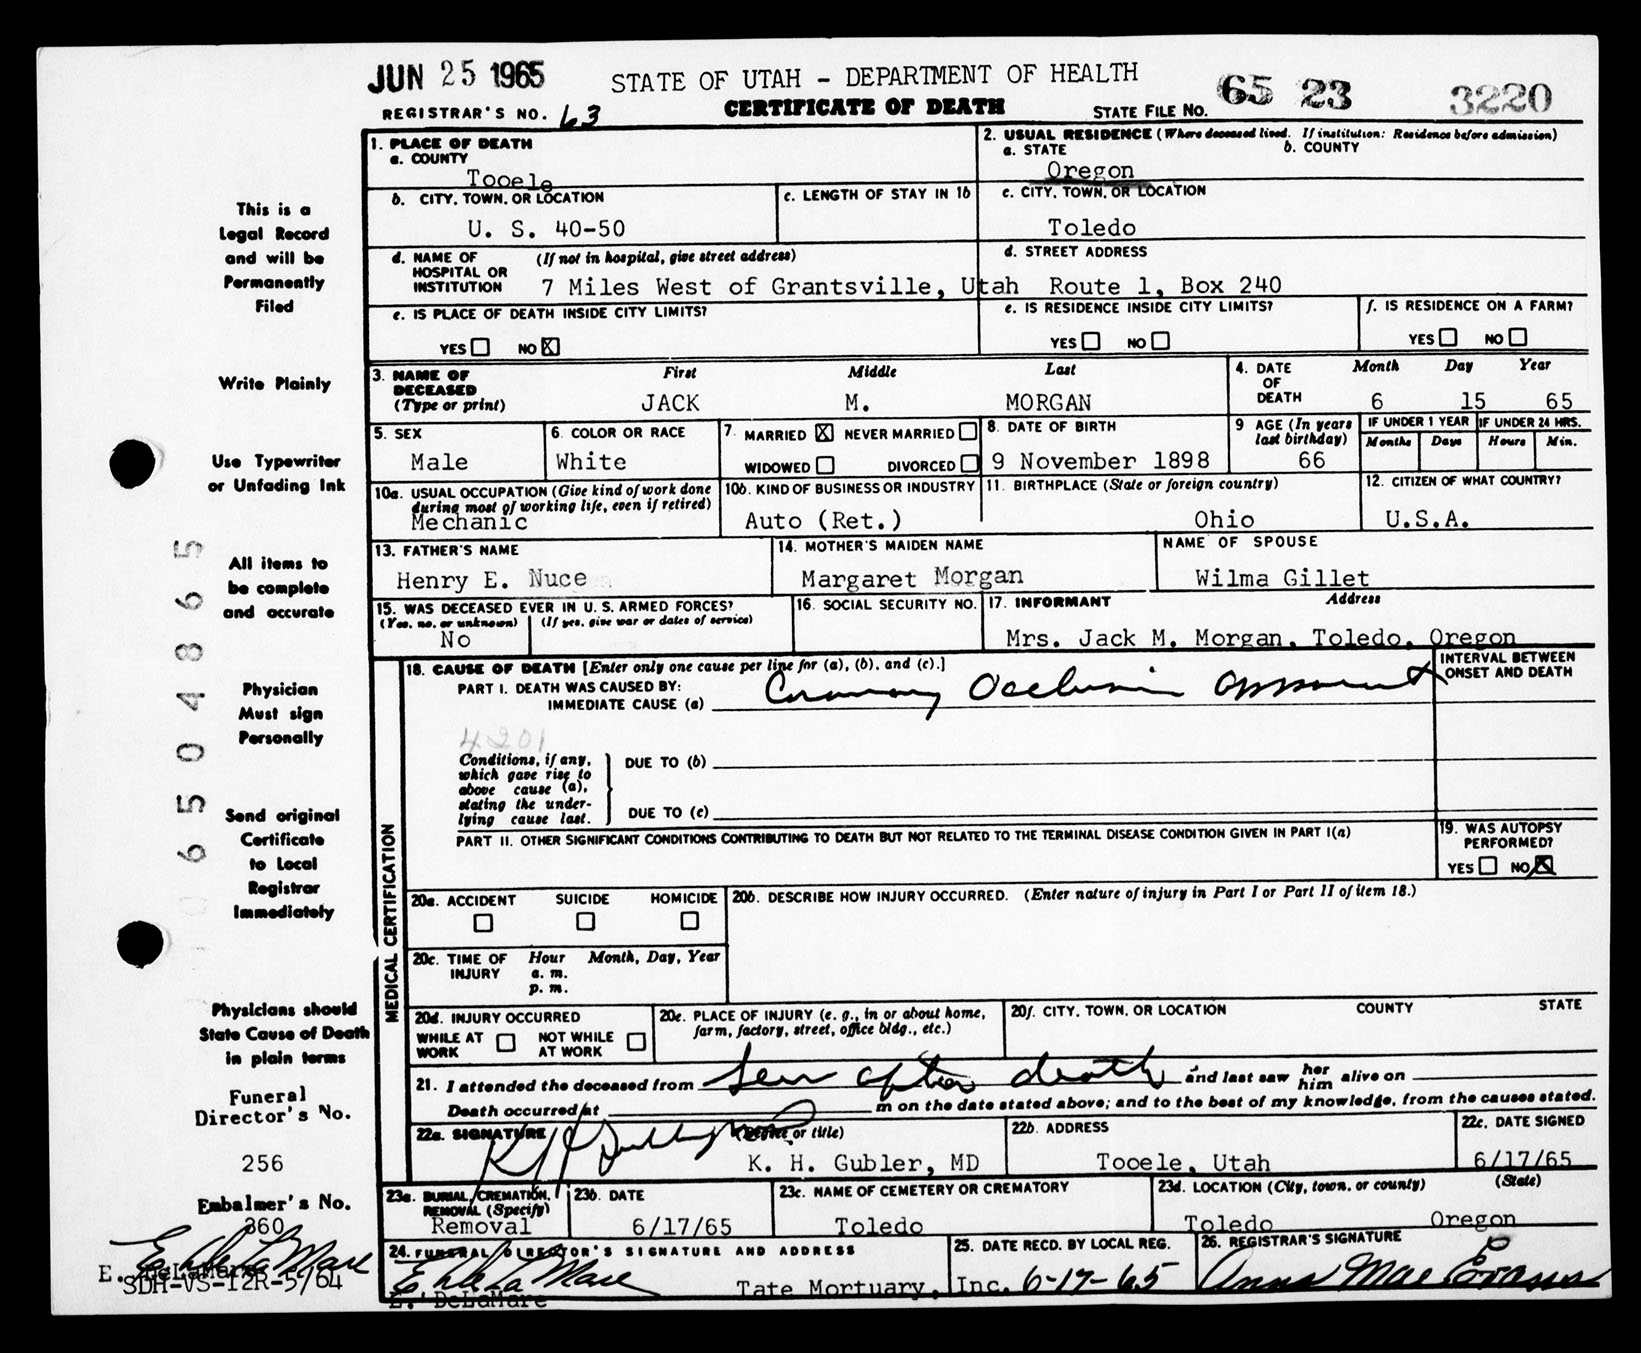 JUN 25 1965
STATE OF UTAH - DEPARTMENT OF HEALTH
65 23 3220
REGISTRAR'S NO. 63
CERTIFICATE OF DEATH
STATE FILE NO.
This is a
Legal Record
and will be
Permanently
Filed
Write Plainly
Use Typewriter
or Unfading Ink
All items to
be complete
and accurate
Physician
Must sign
Personally
Send original
Certificate
to Local
Registrar
Immediately
Physicians should
State Cause of Death
in plain terms
Funeral
Director's No.
256
Embalmer's No.
360
E. DeLaMare
SDH-VS-12R-5/64
06504865
1. PLACE OF DEATH
a. COUNTY
Tooele
2. USUAL RESIDENCE (Where deceased lived. If institution: Residence before admission)
a. STATE b. COUNTY
Oregon
b. CITY, TOWN, OR LOCATION
U. S. 40-50
c. LENGTH OF STAY IN 1b
c. CITY, TOWN, OR LOCATION
Toledo
d. NAME OF HOSPITAL OR INSTITUTION (If not in hospital, give street address)
7 Miles West of Grantsville, Utah
d. STREET ADDRESS
Route 1, Box 240
e. IS PLACE OF DEATH INSIDE CITY LIMITS?
YES NO X
e. IS RESIDENCE INSIDE CITY LIMITS?
YES NO
f. IS RESIDENCE ON A FARM?
YES NO
3. NAME OF DECEASED (Type or print)
First Middle Last
JACK M. MORGAN
4. DATE OF DEATH
Month Day Year
6 15 65
5. SEX
Male
6. COLOR OR RACE
White
7. MARRIED X NEVER MARRIED
WIDOWED DIVORCED
8. DATE OF BIRTH
9 November 1898
9 AGE (In years last birthday)
66
IF UNDER 1 YEAR IF UNDER 24 HRS.
Months Days Hours Min.
10a. USUAL OCCUPATION (Give kind of work done during most of working life, even if retired)
Mechanic
10b. KIND OF BUSINESS OR INDUSTRY
Auto (Ret.)
11. BIRTHPLACE (State or foreign country)
Ohio
12. CITIZEN OF WHAT COUNTRY?
U.S.A.
13. FATHER'S NAME
Henry E. Nuce
14. MOTHER'S MAIDEN NAME
Margaret Morgan
NAME OF SPOUSE
Wilma Gillet
15. WAS DECEASED EVER IN U. S. ARMED FORCES?
(Yes, no, or unknown) (If yes, give war or dates of service)
No
16. SOCIAL SECURITY NO.
17. INFORMANT Address
Mrs. Jack M. Morgan, Toledo, Oregon
MEDICAL CERTIFICATION
18. CAUSE OF DEATH [Enter only one cause per line for (a), (b), and (c).]
INTERVAL BETWEEN
ONSET AND DEATH
PART I. DEATH WAS CAUSED BY:
IMMEDIATE CAUSE (a) Coronary Occlusion apparent
4201
Conditions, if any,
which gave rise to
above cause (a),
stating the under-
lying cause last.
DUE TO (b)
DUE TO (c)
PART II. OTHER SIGNIFICANT CONDITIONS CONTRIBUTING TO DEATH BUT NOT RELATED TO THE TERMINAL DISEASE CONDITION GIVEN IN PART I(a)
19. WAS AUTOPSY
PERFORMED?
YES NO X
20a. ACCIDENT SUICIDE HOMICIDE
20b. DESCRIBE HOW INJURY OCCURRED. (Enter nature of injury in Part I or Part II of item 18.)
20c. TIME OF INJURY
Hour Month, Day, Year
a. m.
p. m.
20d. INJURY OCCURRED
WHILE AT WORK NOT WHILE AT WORK
20e. PLACE OF INJURY (e. g., in or about home, farm, factory, street, office bldg., etc.)
20f. CITY, TOWN, OR LOCATION COUNTY STATE
21. I attended the deceased from seen after death and last saw her him alive on
Death occurred at m on the date stated above; and to the best of my knowledge, from the causes stated.
22a. SIGNATURE (Degree or title)
K H Gubler MD
K. H. Gubler, MD
22b. ADDRESS
Tooele, Utah
22c. DATE SIGNED
6/17/65
23a. BURIAL, CREMATION, REMOVAL (Specify)
Removal
23b. DATE
6/17/65
23c. NAME OF CEMETERY OR CREMATORY
Toledo
23d. LOCATION (City, town, or county) (State)
Toledo Oregon
24. FUNERAL DIRECTOR'S SIGNATURE AND ADDRESS
E. DeLaMare
Tate Mortuary, Inc.
25. DATE RECD. BY LOCAL REG.
6-17-65
26. REGISTRAR'S SIGNATURE
Anna Mae Evans